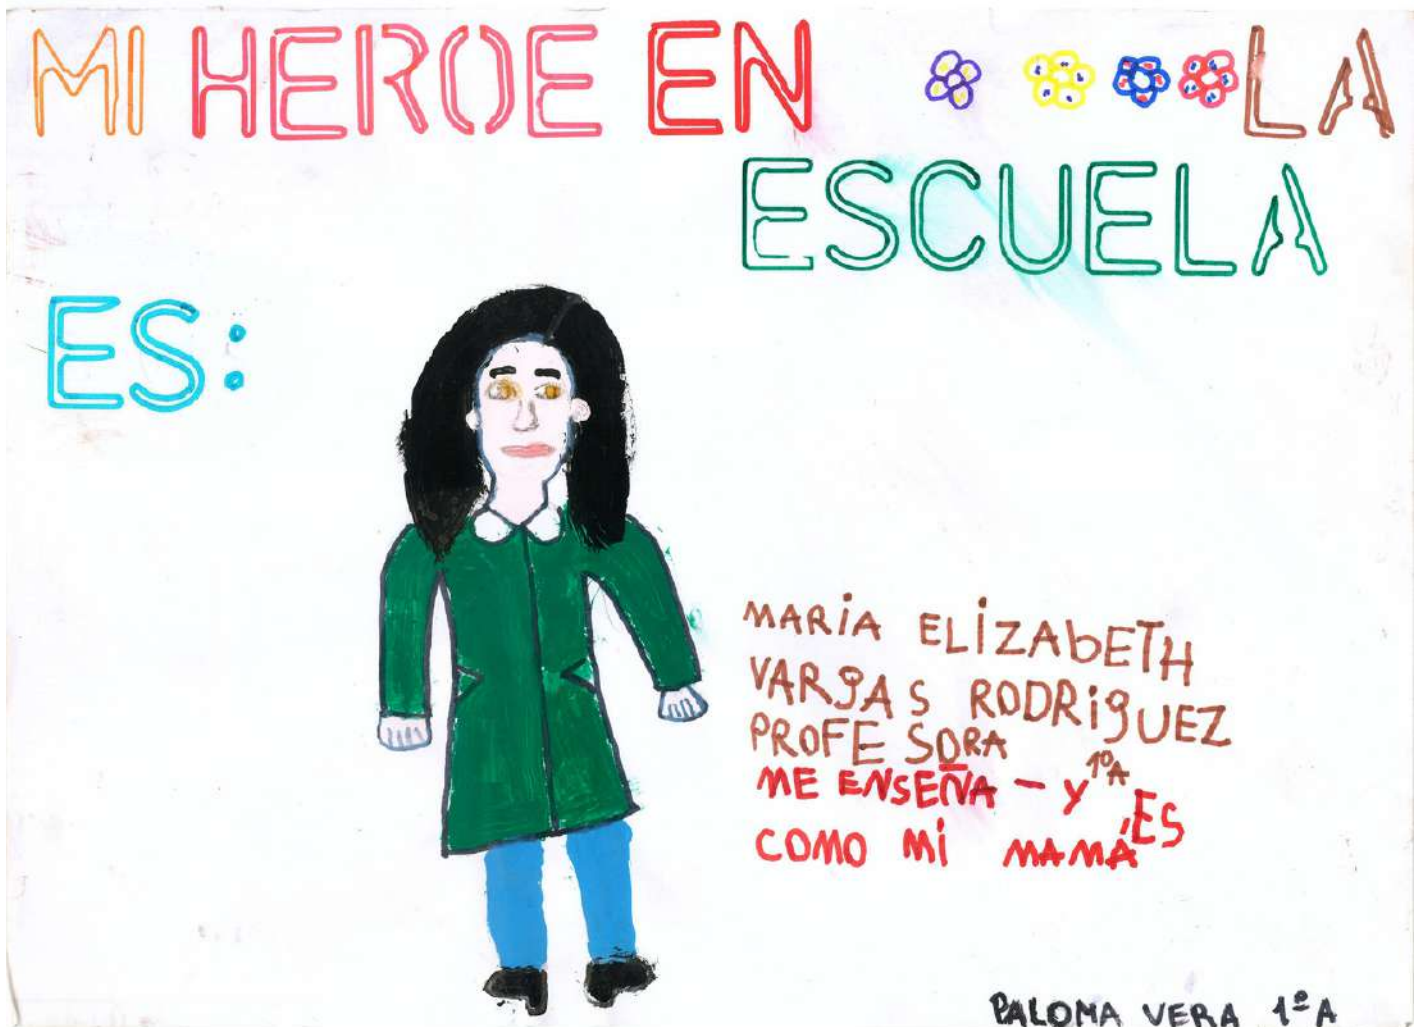 MI HEROE EN LA
ESCUELA
ES:
MARIA ELIZAbETH
VARgAS RODRIgUEZ
PROFESORA 1ºA
ME ENSEÑA - Y ES
COMO MI MAMÁ
PALOMA VERA 1ºA